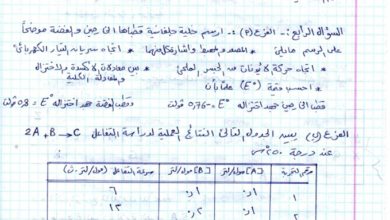 السؤال الرابع :- الفرع (P) :- ارسم خلية جلفانية قطباها الخارصين والفضة موضحاً
على الرسم مايلي : * المصعد والمهبط واشارة كل منهما * اتجاه سريان التيار الكهربائي
* اتجاه حركة الأيونات في الجسر الملحي * بين معادلات الأكسدة والاختزال والمعادلة الكلية
* احسب قيمة (E°) علماً بأن
قطب الخارصين جهد اختزاله E° = 0,76- فولت وقطب الفضة جهد اختزاله E° = 0,8 فولت
الفرع (ب) يبين الجدول التالي النتائج العملية لدراسة التفاعل 2A + B → C
عند درجة ٢٥٠ س
رقم التجربة [A] مول/لتر [B] مول/لتر سرعة التفاعل (مول/لتر.ث)
١ ٠,١ ٠,١ ٦
٢ ٠,١ ٠,٢ ١٢